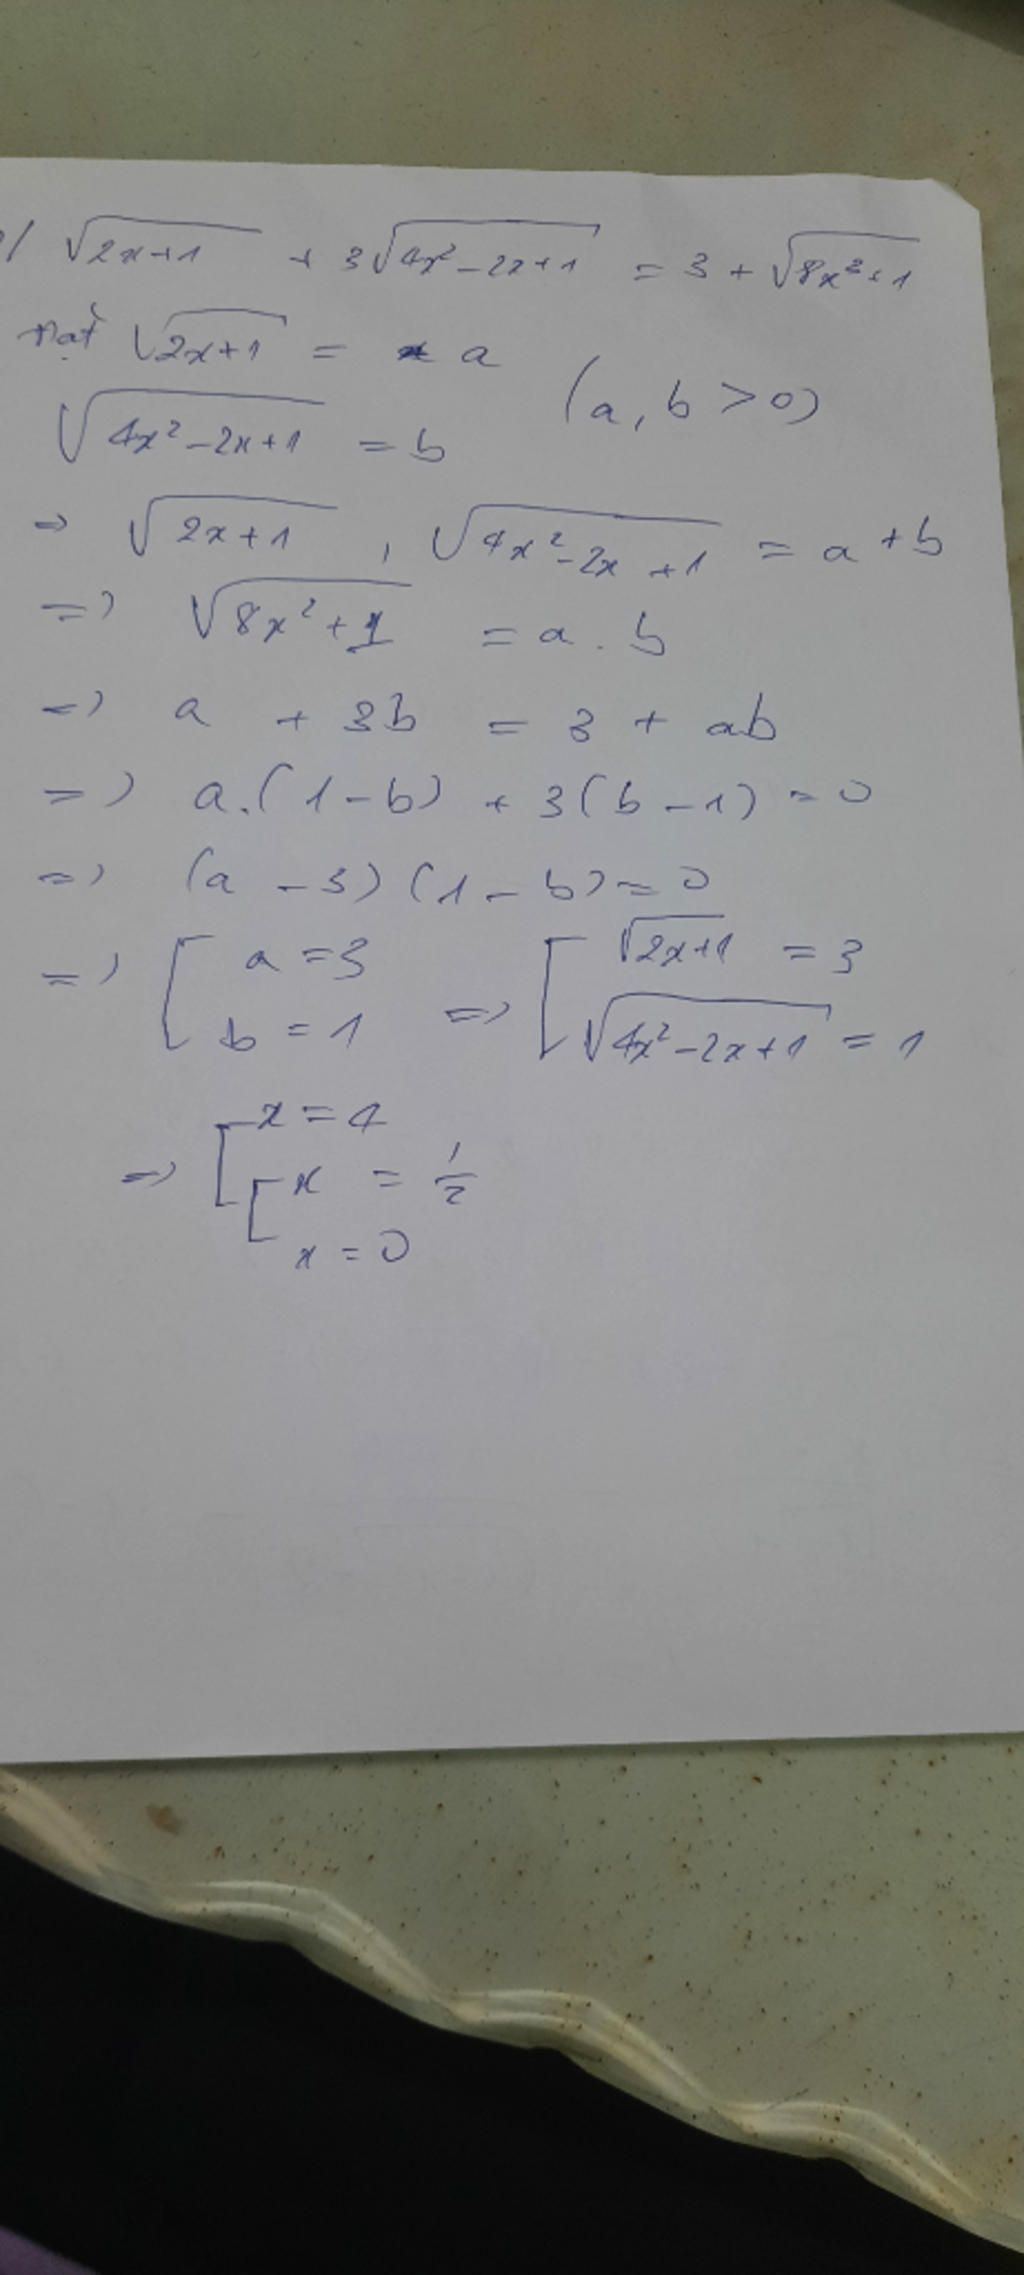 √(2x+1) + 3√(4x² - 2x + 1) = 3 + √(8x³ + 1)
Đặt √(2x+1) = a
(a, b > 0)
√(4x² - 2x + 1) = b
⇒ √(2x+1) , √(4x² - 2x + 1) = a + b
⇒ √(8x² + 1) = a . b
⇒ a + 3b = 3 + ab
⇒ a.(1 - b) + 3(b - 1) = 0
⇒ (a - 3)(1 - b) = 0
⇒ [ a = 3 ⇒ [ √(2x+1) = 3
b = 1 √(4x² - 2x + 1) = 1
⇒ [ x = 4
[ x = 1/2
x = 0